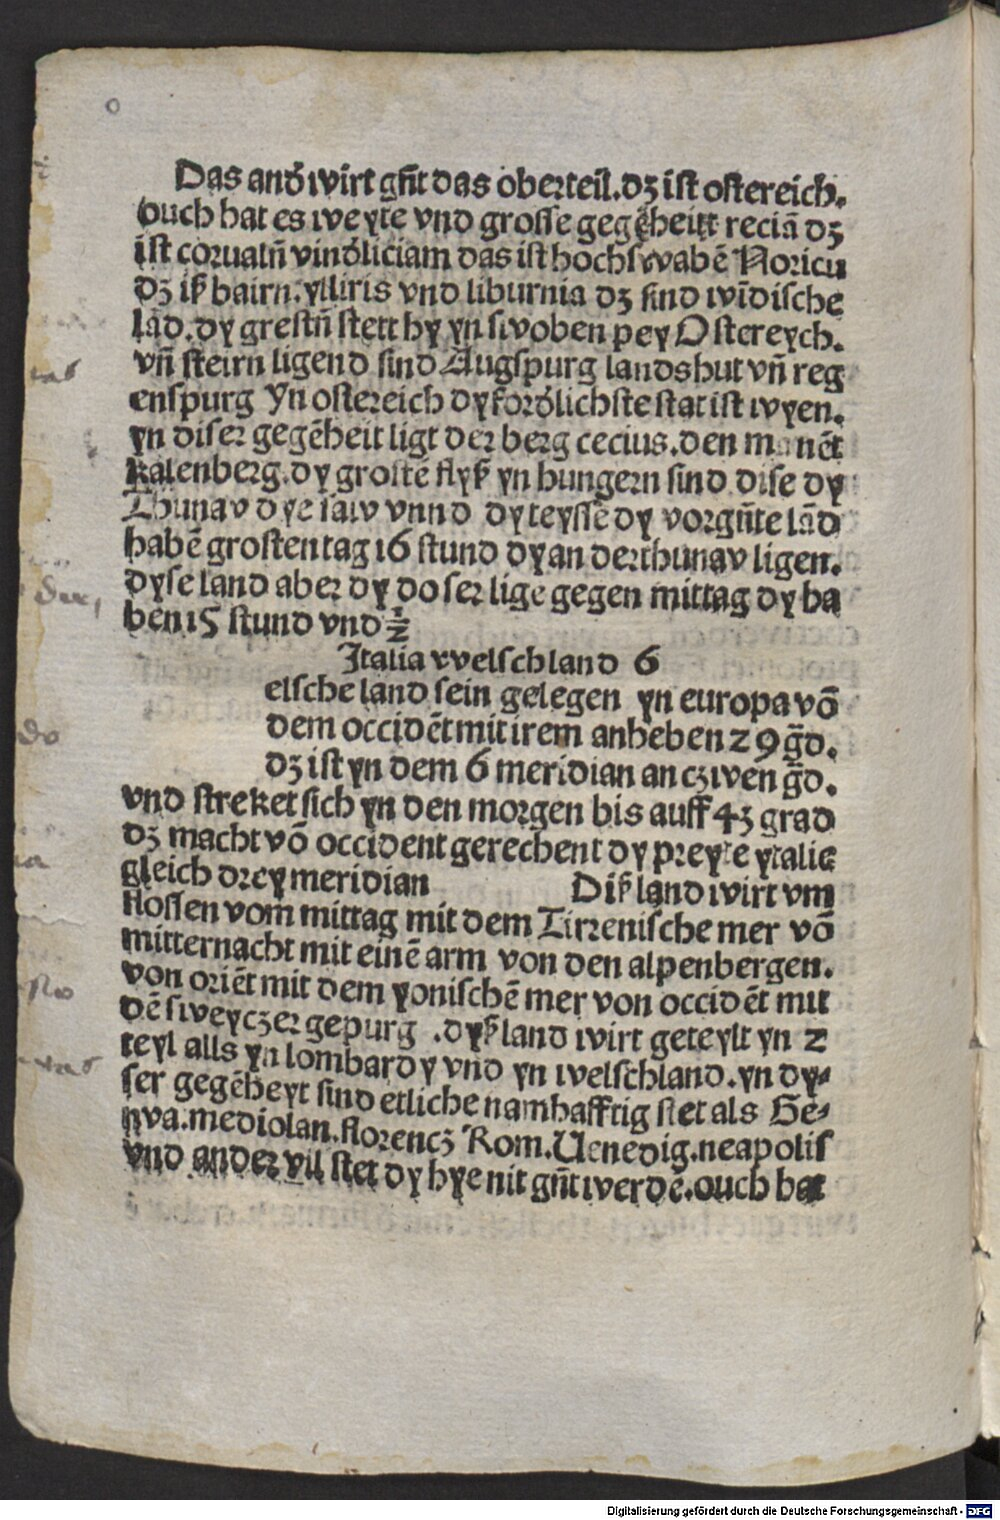 Das and̾ wirt gñt das oberteil.dʒ ist ostereich.
ouch hat es weyte vnd grosse gegēheitt reciā dʒ
ist corualñ vind̾liciam das ist hochswabē Noricu
dʒ iß bairn.ylliris vnd liburnia dʒ sind wīdische
lād.dy grestñ stett hy yn swoben pey Ostereych.
vñ steirn ligend sind Augspurg landshut vñ reg
enspurg Yn ostereich dy ford̾lichste stat ist wyen.
yn diser gegēheit ligt der berg cecius.den nēt
kalenberg.dy grostē flyß yn hungern sind dise dy
Thunav dye saw vnnd dy teysse dy vorgñte lād
habē grosten tag 16 stund dy an der thunav ligen.
dyse land aber dy do ser lige gegen mittag dy ha
ben 15 stund vnd ½
Italia welschland 6
elsche land sein gelegen yn europa vō
dem occidēt mit irem anheben 29 g̃d.
dʒ ist yn dem 6 meridian an czwen g̃d.
vnd streket sich yn den morgen bis auff 43 grad
dʒ macht vō occident gerechent dy preyte ytalie
gleich drey meridian Diß land wirt vm
flossen vom mittag mit dem Tirrenische mer vō
mitternacht mit einē arm von den alpenbergen.
von oriēt mit dem yonischē mer von occidēt mit
dē sweyczer gepurg .dyß land wirt geteylt yn 2
teyl alls yn lombardy vnd yn welschland.yn dy⸗
ser gegēheyt sind etliche namhafftig stet als Ge⸗
nva.mediolan.florencz Rom.Venedig.neapolis
vnd ander vil stet dy hye nit gñt werdē.ouch hat
do
Digitalisierung gefördert durch die Deutsche Forschungsgemeinschaft - DFG